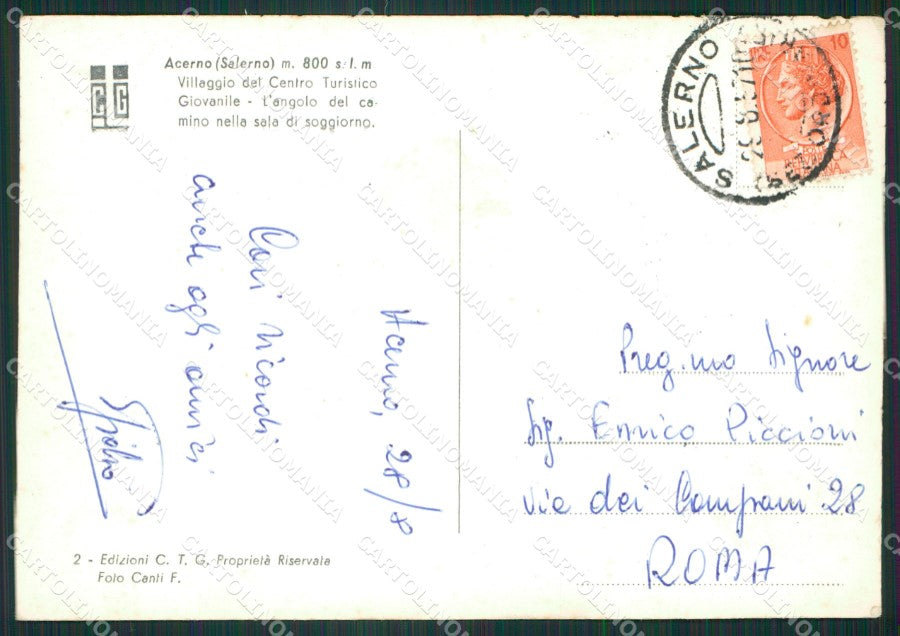 Acerno (Salerno) m. 800 s.l.m
Villaggio del Centro Turistico
Giovanile - L'angolo del ca-
mino nella sala di soggiorno.
CTG
SALERNO
10
Acerno, 28/8
Cari ricordi
anche agli amici
Preg.mo Signore
Sig. Enrico Piccioni
Via dei Campani 28
ROMA
2 - Edizioni C. T. G. Proprietà Riservata
Foto Canti F.
CARTOLINOMANIA